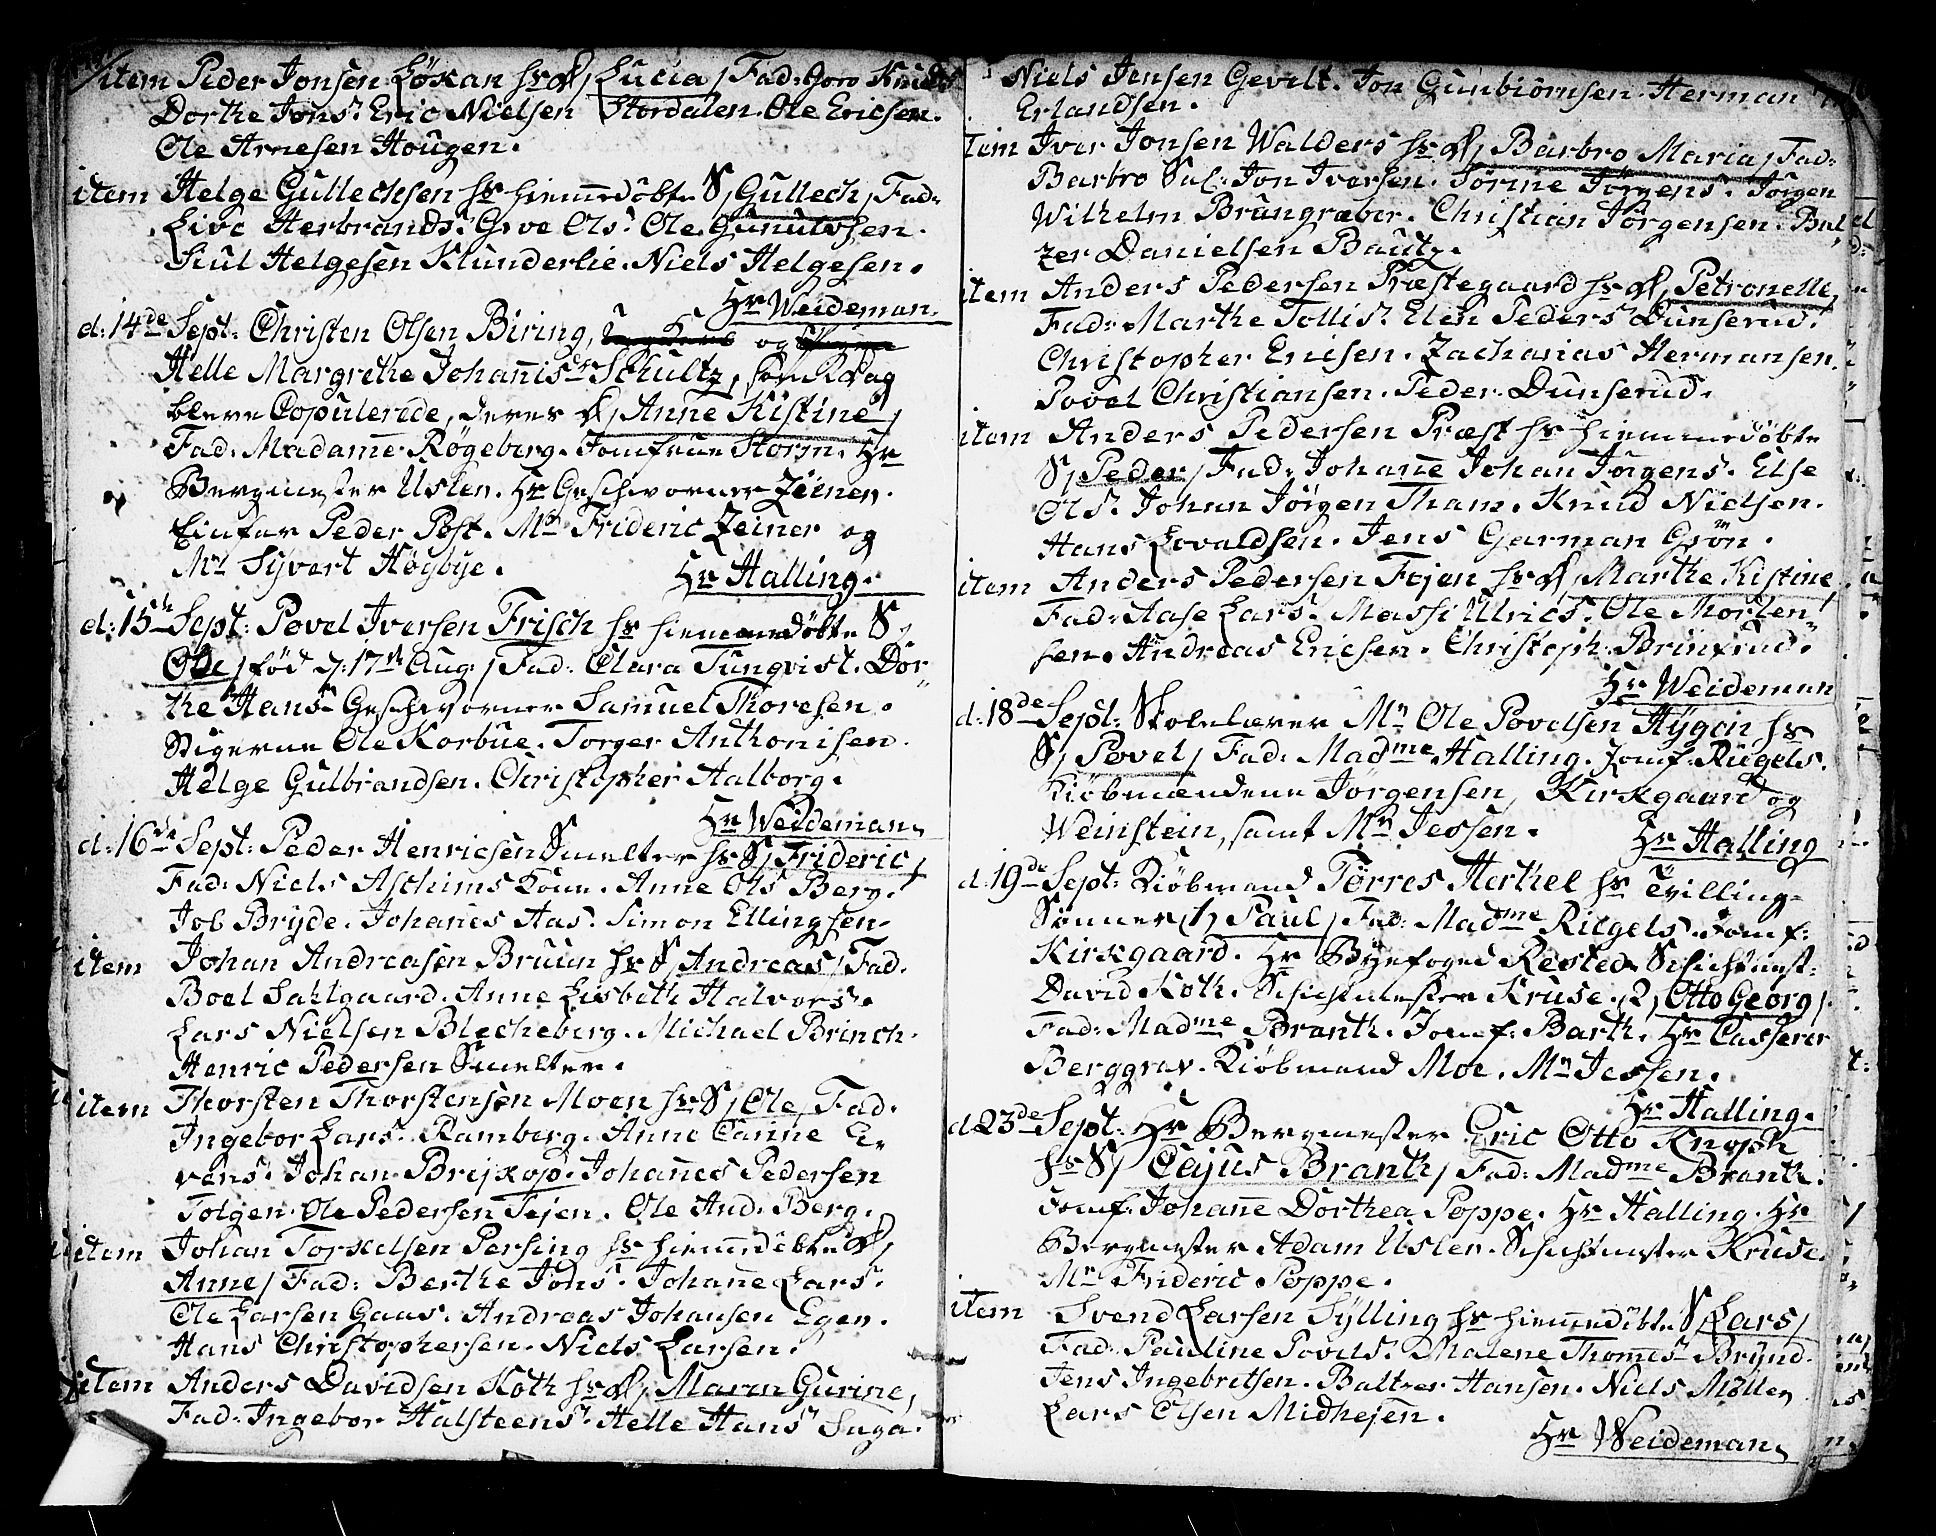 item Peder Jonsen Løkan hs D, Lucia, Fad: Joro Knuds
Dorthe Jons: Eric Nielsen Stordalen. Ole Ericsen.
Ole Arnesen Hougen.
item Helge Gullechsen hs hiemmedøbte S, Gullech, Fad:
Live Herbrands: Ole Gunulvsen.
Siul Helgesen Klunderlie. Niels Helgesen.
Hr Weideman.
d: 14de Sept: Christen Olsen Biring, og
Helle Margrethe Johannisdr Schultz, som Kdag
bleve Copulerede, deres D, Anne Kistine,
Fad: Madame Røgeberg. Jomfrue Storm. Hr
Bergmester Uslen. Hr Geschworner Zeiner.
Peder Post. Mr Frideric Zeiner og
Mr Syvert Høgbye.
Hr Halling.
d: 15de Sept: Povel Iversen Frisch hs hiemmedøbte S,
Ole, fød d: 17de Aug, Fad: Clara Tunqvist. Dor-
the Hans: Geschworner Samuel Thoresen.
Stigerne Ole Korbue. Torger Anthonisen.
Helge Gulbrandsen. Christopher Aalborg.
Hr Weideman.
d: 16de Sept: Peder Henricsen Smelter hs S, Frideric,
Fad: Niels Aschims Kone. Anne Ols: Berg.
Job Bryde. Johanes Aas. Simon Ellingsen.
item Johan Andreasen Bruun hs S, Andreas, Fad:
Boel Sahlgaard. Anne Lisbeth Halvors:
Lars Nielsen Blecheberg. Michael Brinch.
Henric Pedersen Smelter.
item Thorsten Thorstensen Moen hs S, Ole, Fad:
Ingebor Lars: Ramberg. Anne Carine E-
vens: Johan Brejkop. Johanes Pedersen
Tolgen. Ole Pedersen Fejen. Ole And: Berg.
item Johan Torkelsen Persing hs hiemmedøbte D,
Anne, Fad: Berthe Jons: Johane Lars:
Ole Larsen Gaas. Andreas Johansen Egen.
Hans Christophersen. Niels Larsen.
item Anders Davidsen Koth hs D, Maren Gurine,
Fad: Ingebor Halsteens: Helle Hans: Saga.
Niels Jensen Gevelt. Jon Gunbiørnsen. Herman
Erlandsen.
Item Iver Jonsen Walders hs D, Barbro Maria, Fad:
Barbro Sal: Jon Iversen. Tørrine Jørgens: Jørgen
Wilhelm Brungraber. Christian Jørgensen. Bal-
zer Danielsen Bautz.
item Anders Pedersen Præstegaard hs D, Petronelle,
Fad: Marthe Tollis: Elen Peders: Dunserud.
Christopher Ericsen. Zacharias Hermansen.
Povel Christiansen. Peder Dunserud.
item Anders Pedersen Præst hs hiemmedøbte
S, Peder, Fad: Johane Johan Jørgens: Else
Ols: Johan Jørgen Tham. Knud Nielsen.
Hans Lovaldsen. Jens German Grøn.
item Anders Pedersen Fejen hs D, Marthe Kistine,
Fad: Aase Lars: Massi Ulrics: Ole Morten-
sen. Andreas Ericsen. Christoph: Brinkrud.
Hr Weideman
d: 18de Sept: Skolelærer Mr Ole Povelsen Hÿgen hs
S, Povel, Fad: Madme Halling. Jomf: Riegels.
Kiøbmændene Jørgensen, Kirkgaard og
Weinstein, samt Mr Jessen.
Hr Halling
d: 19de Sept: Kiøbmand Tørres Herkel hs Tvilling-
Sønner, 1, Paul, Fad: Madme Riegels. Jomf:
Kirkgaard. Hr Byefoged Rested. Schichtmst:
David Koth. Schichtmester Kruse. 2, Otto Georg,
Fad: Madme Branth. Jomf: Barth. Hr Casserer
Berggrav. Kiøbmand Moe. Mr Jessen.
Hr Halling.
d 23de Sept: Hr Bergmester Eric Otto Knoph
hs S, Cajus Branth, Fad: Madme Branth.
Jomf: Johane Dorthea Poppe. Hr Halling. Hr
Bergmester Adam Uslen. Schichtmester Kruse.
Mr Frideric Poppe.
item Svend Larsen Sylling hs hiemmedøbte S, Lars,
Fad: Pauline Povels: Malene Thomæs: Brynd.
Jens Ingebretsen. Baltzer Hansen. Niels Møller.
Lars Olsen Midhejen.
Hr Weideman.